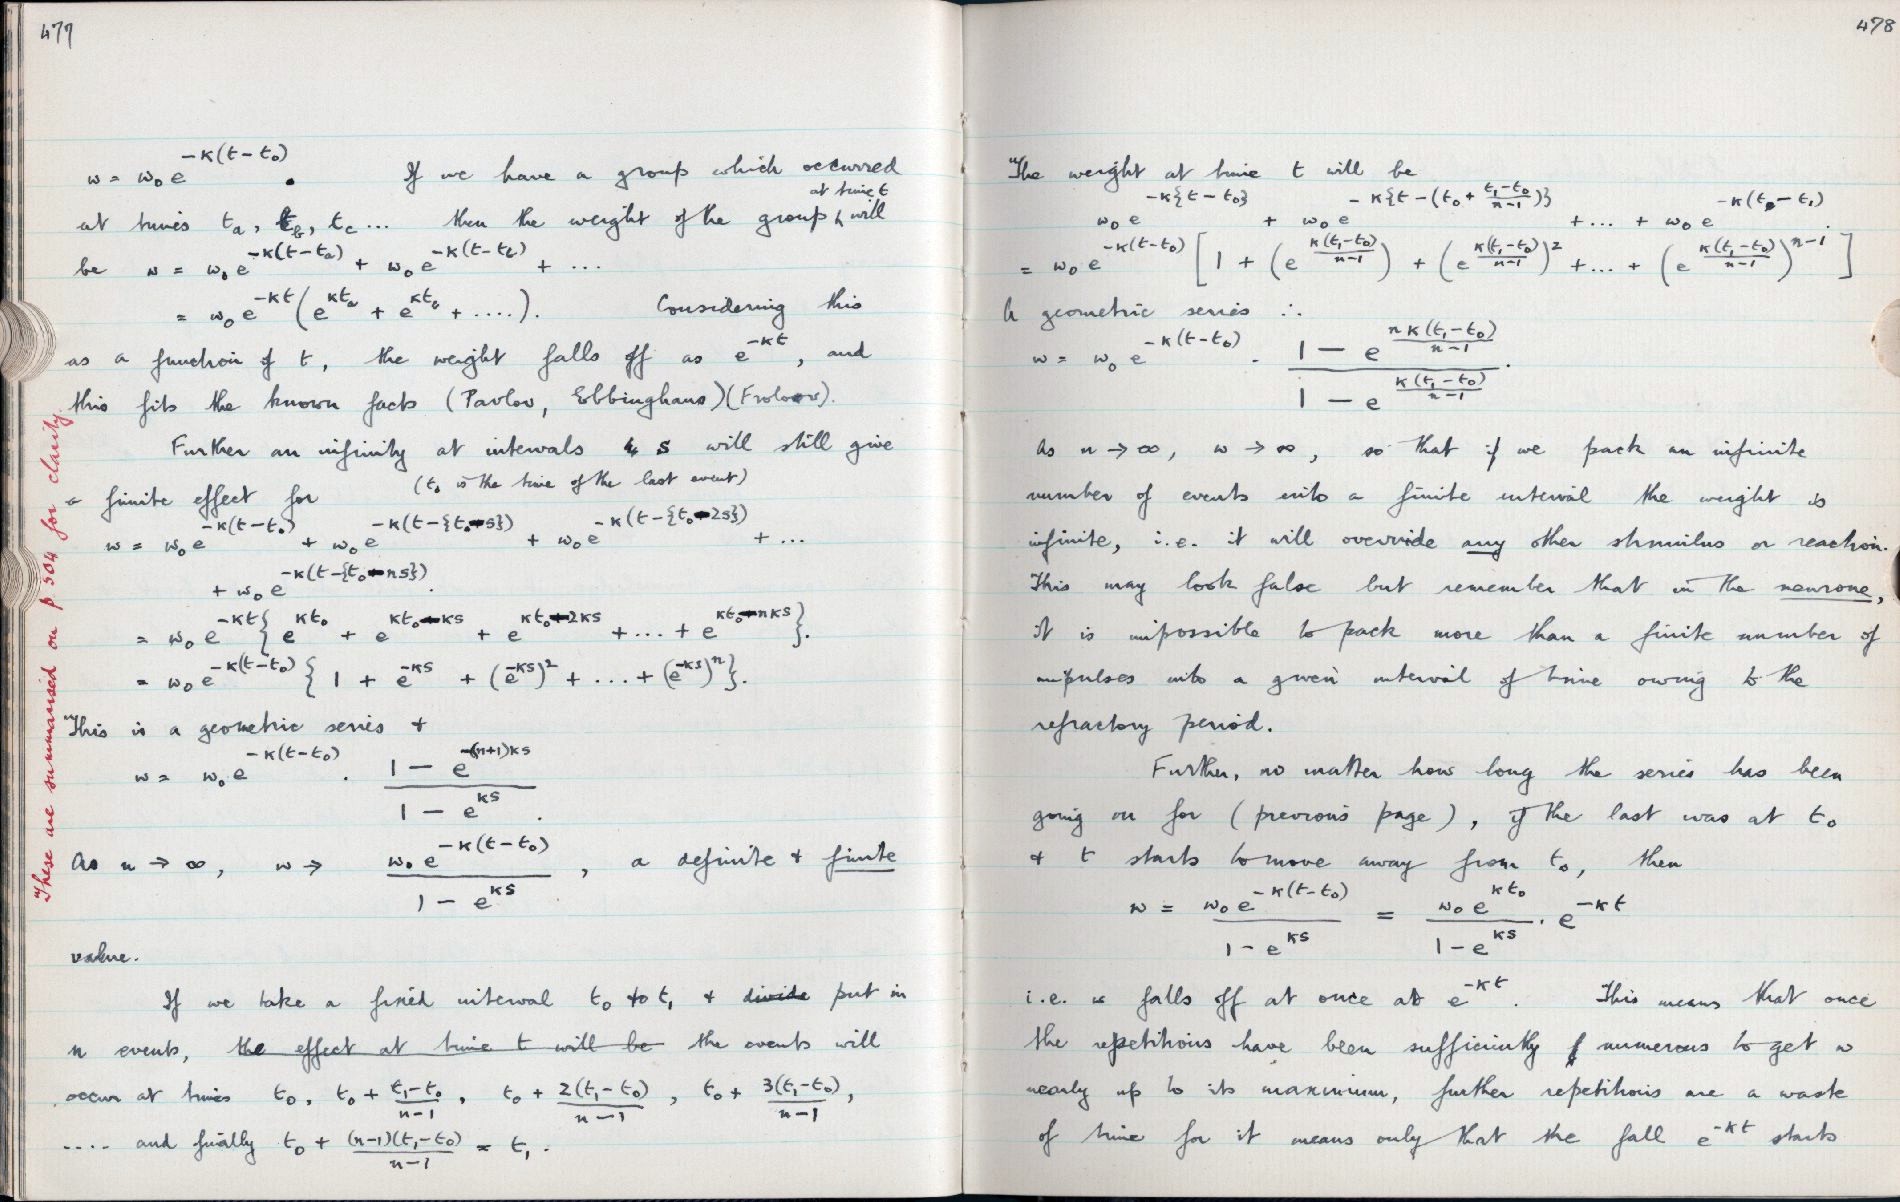 477
w = w₀e^{-κ(t-t₀)}. If we have a group which occurred
at times tₐ, t_b, t_c ... then the weight of the group at time t will
be w = w₀e^{-κ(t-tₐ)} + w₀e^{-κ(t-t_b)} + ...
= w₀e^{-κt}(e^{κtₐ} + e^{κt_b} + ....). Considering this
as a function of t, the weight falls off as e^{-κt}, and
this fits the known facts (Pavlov, Ebbinghaus)(Frolov).
Further an infinity at intervals s will still give
a finite effect for (t₀ is the time of the last event)
w = w₀e^{-κ(t-t₀)} + w₀e^{-κ(t-{t₀-s})} + w₀e^{-κ(t-{t₀-2s})} + ...
+ w₀e^{-κ(t-{t₀-ns})}.
= w₀e^{-κt}{e^{κt₀} + e^{κt₀-κs} + e^{κt₀-2κs} + ... + e^{κt₀-nκs}}.
= w₀e^{-κ(t-t₀)}{1 + e^{-κs} + (e^{-κs})² + ... + (e^{-κs})ⁿ}.
This is a geometric series +
w = w₀e^{-κ(t-t₀)} . (1 - e^{-(n+1)κs}) / (1 - e^{κs}).
As n → ∞, w → w₀e^{-κ(t-t₀)} / (1 - e^{κs}), a definite + finite
value.
If we take a fixed interval t₀ to t₁ + divide put in
n events, the effect at time t will be the events will
occur at times t₀, t₀ + (t₁-t₀)/(n-1), t₀ + 2(t₁-t₀)/(n-1), t₀ + 3(t₁-t₀)/(n-1),
.... and finally t₀ + (n-1)(t₁-t₀)/(n-1) = t₁.
These are summarised on p 504 for clarity.
478
The weight at time t will be
w₀e^{-κ{t-t₀}} + w₀e^{-κ{t-(t₀+(t₁-t₀)/(n-1))}} + ... + w₀e^{-κ(t-t₁)}.
= w₀e^{-κ(t-t₀)}[1 + (e^{κ(t₁-t₀)/(n-1)}) + (e^{κ(t₁-t₀)/(n-1)})² + ... + (e^{κ(t₁-t₀)/(n-1)})^{n-1}]
A geometric series ∴
w = w₀e^{-κ(t-t₀)} . (1 - e^{nκ(t₁-t₀)/(n-1)}) / (1 - e^{κ(t₁-t₀)/(n-1)}).
As n → ∞, w → ∞, so that if we pack an infinite
number of events into a finite interval the weight is
infinite, i.e. it will override any other stimulus or reaction.
This may look false but remember that in the neurone,
it is impossible to pack more than a finite number of
impulses into a given interval of time owing to the
refractory period.
Further, no matter how long the series has been
going on for (previous page), if the last was at t₀
+ t starts to move away from t₀, then
w = w₀e^{-κ(t-t₀)} / (1-e^{κs}) = w₀e^{κt₀} / (1-e^{κs}) . e^{-κt}
i.e. w falls off at once as e^{-κt}. This means that once
the repetitions have been sufficiently numerous to get w
nearly up to its maximum, further repetitions are a waste
of time for it means only that the fall e^{-κt} starts